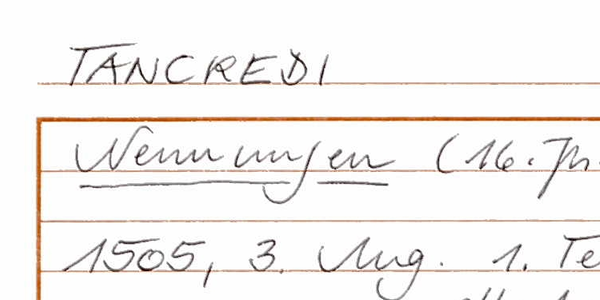 TANCREDI
Nennungen (16. Jh.
1505, 3. Aug. 1. Te